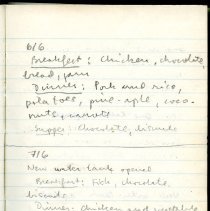 6/6
Breakfast: Chicken, chocolate,
bread, jam
Dinner: Pork and rice,
potatoes, pine-aple, coco-
nuts, carrots
Supper: Chocolate, biscuits
7/6
New water tank opened
Breakfast: Fish, chocolate,
biscuits
Dinner: Chicken and vegetable